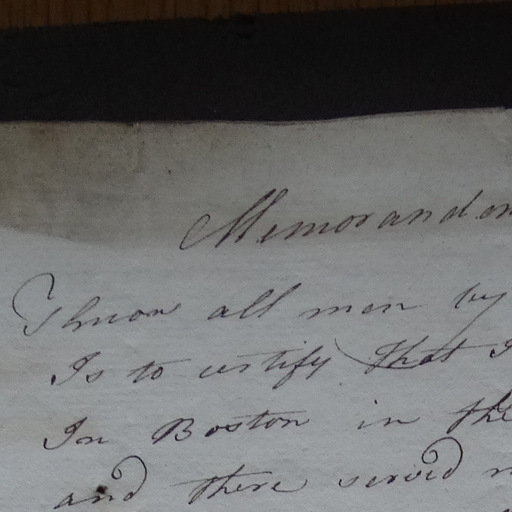 Memorandom
Thnow all men by
Is to certify that I
In Boston in the
and there served